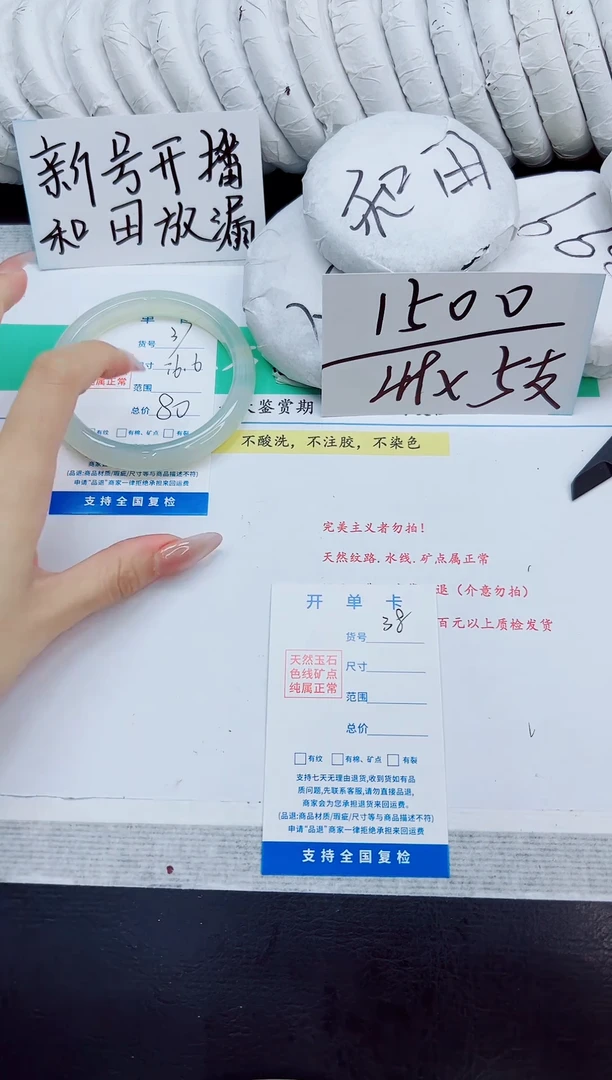 新号开播
和田放漏
和田
1500
开
货号 37
寸 56.6
纯属正常
范围
总价 80
鉴赏期
有棉、矿点 有裂
(品退:商品材质/瑕疵/尺寸等与商品描述不符)
申请“品退”商家一律拒绝承担来回运费
支持全国复检
不酸洗，不注胶，不染色
完美主义者勿拍！
天然纹路.水线.矿点属正常
退（介意勿拍）
百元以上质检发货
开单卡
38
货号
天然玉石
色线矿点
纯属正常
尺寸
范围
总价
有纹 有棉、矿点 有裂
支持七天无理由退货,收到货如有品
质问题,先联系客服,请勿直接品退,
商家会为您承担退货来回运费。
(品退:商品材质/瑕疵/尺寸等与商品描述不符)
申请“品退”商家一律拒绝承担来回运费
支持全国复检